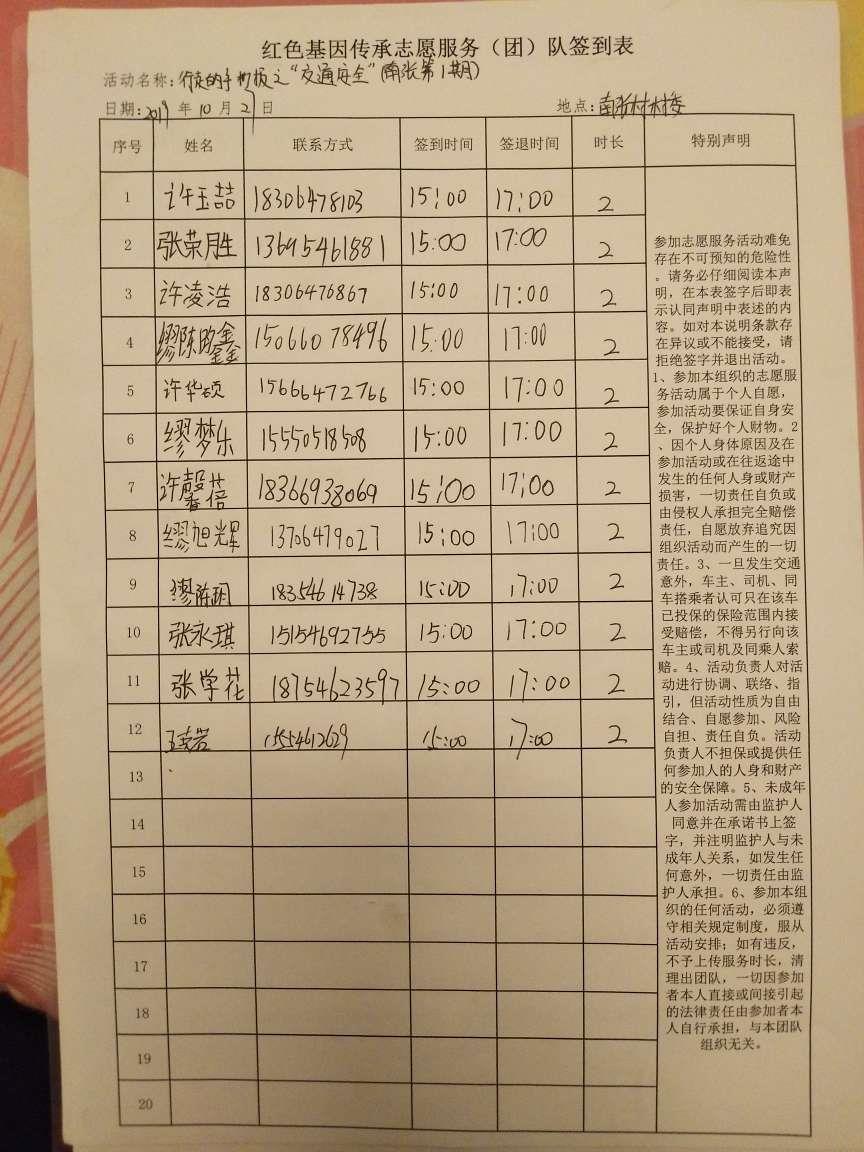 红色基因传承志愿服务（团）队签到表
活动名称：行走的手抄报之“交通安全”（南张第1期）
日期：2019 年 10 月 2 日 地点：南张村村委
序号 姓名 联系方式 签到时间 签退时间 时长 特别声明
1 许玉喆 18306478103 15:00 17:00 2
2 张荣胜 13695461881 15:00 17:00 2
3 许凌浩 18306476867 15:00 17:00 2
4 缪陈鑫 15066078496 15:00 17:00 2
5 许华硕 15666472766 15:00 17:00 2
6 缪梦乐 15550518508 15:00 17:00 2
7 许馨蓓 18366938069 15:00 17:00 2
8 缪旭辉 13706479027 15:00 17:00 2
9 缪陈玥 18354614738 15:00 17:00 2
10 张永琪 15154692755 15:00 17:00 2
11 张学花 18754623597 15:00 17:00 2
12 15554612629 15:00 17:00 2
13
14
15
16
17
18
19
20
参加志愿服务活动难免
存在不可预知的危险性
。请务必仔细阅读本声
明，在本表签字后即表
示认同声明中表述的内
容。如对本说明条款存
在异议或不能接受，请
拒绝签字并退出活动。
1、参加本组织的志愿服
务活动属于个人自愿，
参加活动要保证自身安
全，保护好个人财物。2
、因个人身体原因及在
参加活动或在往返途中
发生的任何人身或财产
损害，一切责任自负或
由侵权人承担完全赔偿
责任，自愿放弃追究因
组织活动而产生的一切
责任。3、一旦发生交通
意外，车主、司机、同
车搭乘者认可只在该车
已投保的保险范围内接
受赔偿，不得另行向该
车主或司机及同乘人索
赔。4、活动负责人对活
动进行协调、联络、指
引，但活动性质为自由
结合、自愿参加、风险
自担、责任自负。活动
负责人不担保或提供任
何参加人的人身和财产
的安全保障。5、未成年
人参加活动需由监护人
同意并在承诺书上签
字，并注明监护人与未
成年人关系，如发生任
何意外，一切责任由监
护人承担。6、参加本组
织的任何活动，必须遵
守相关规定制度，服从
活动安排；如有违反，
不予上传服务时长，清
理出团队，一切因参加
者本人直接或间接引起
的法律责任由参加者本
人自行承担，与本团队
组织无关。